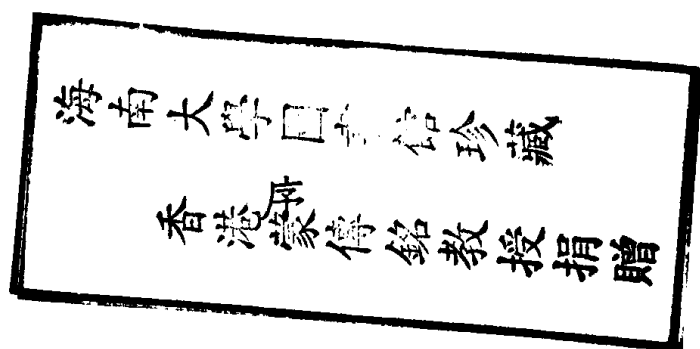 海南大學圖書館珍藏
香港蒙傳銘教授捐贈